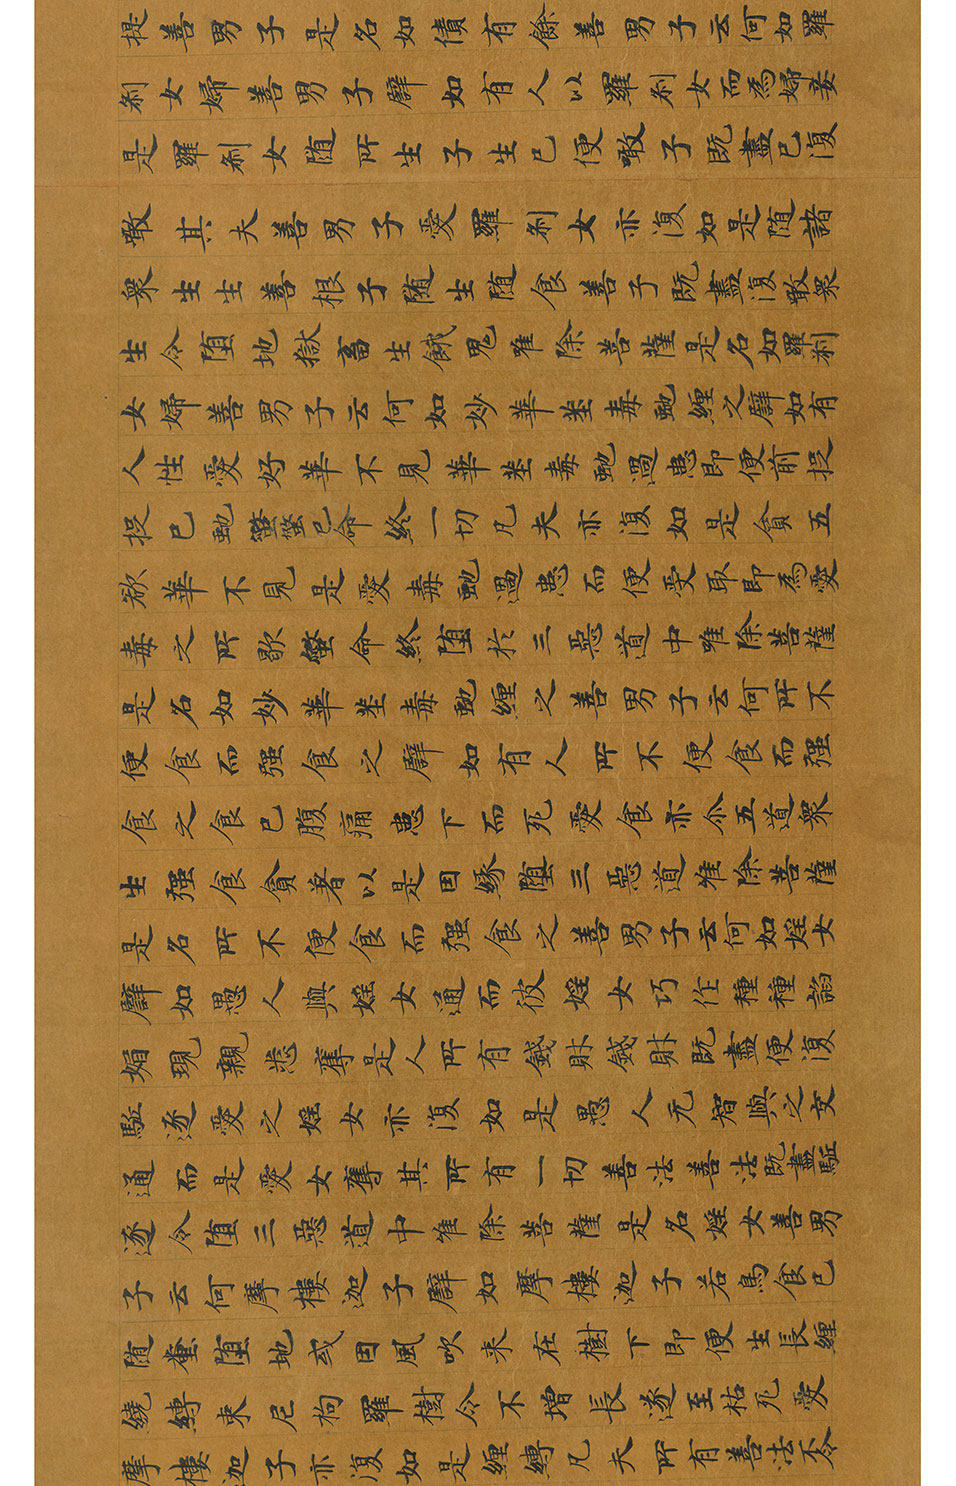 提善男子是名如債有餘善男子云何如羅
刹女婦善男子譬如有人以羅刹女而為婦妾
是羅刹女随所生子生已便噉子既盡已復
噉其夫善男子愛羅刹女亦復如是随諸
衆生生善根子随生随食善子既盡復噉衆
生令堕地獄畜生餓鬼唯除菩薩是名如羅刹
女婦善男子云何如妙華莖毒虵纏之譬如有
人性愛好華不見華莖毒虵過患即便前捉
捉已虵螫螫已命終一切凡夫亦復如是貪五
欲華不見是愛毒虵過患而便受取即為愛
毒之所歇螫命終堕於三惡道中唯除菩薩
是名如妙華莖毒虵纏之善男子云何所不
便食而强食之譬如有人所不便食而强
食之食已腹痛患下而死愛食亦尒五道衆
生强食貪著以是因緣堕三惡道唯除菩薩
是名所不便食而强食之善男子云何如婬女
譬如愚人與婬女通而彼婬女巧作種種諂
媚現親悉奪是人所有錢財錢財既盡便復
駈逐愛之婬女亦復如是愚人无智與之交
通而是愛女奪其所有一切善法善法既盡駈
逐令堕三惡道中唯除菩薩是名婬女善男
子云何摩樓迦子譬如摩樓迦子若鳥食已
随糞堕地或因風吹来在樹下即便生長纏
繞縛束尼拘羅樹令不增長遂至枯死愛
摩樓迦子亦復如是纏縛凡夫所有善法不令